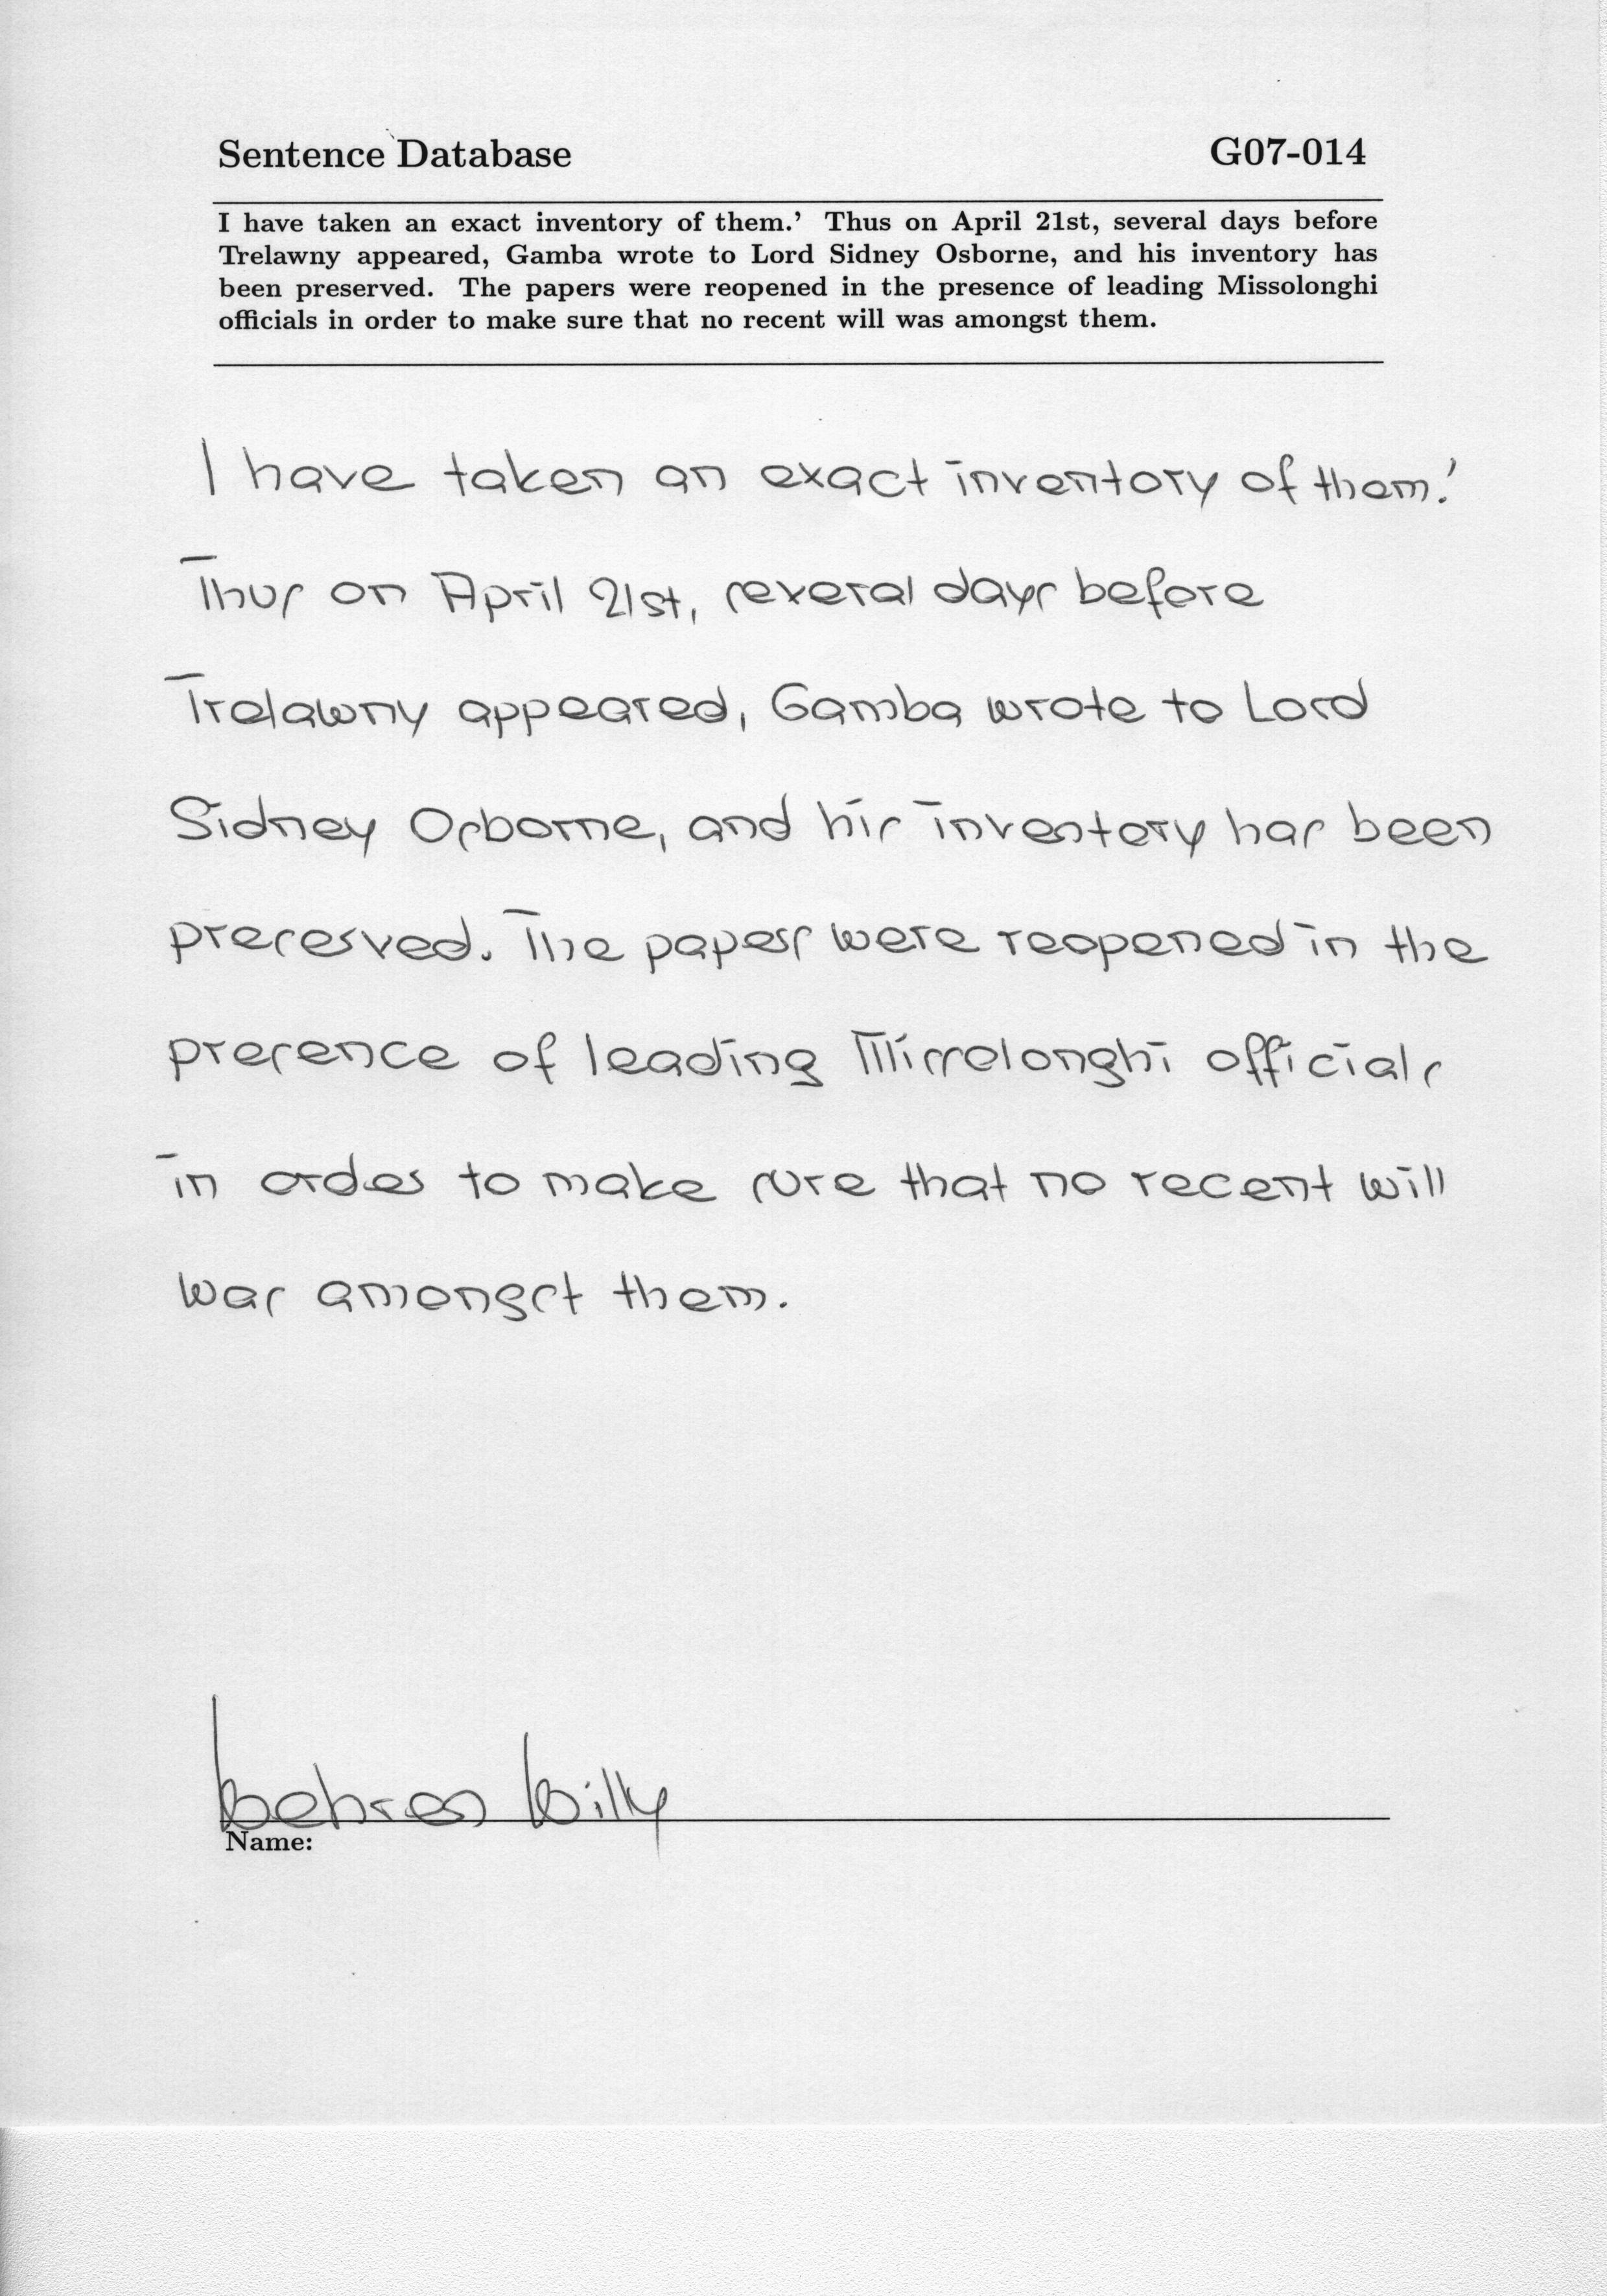 Sentence Database G07-014
I have taken an exact inventory of them.' Thus on April 21st, several days before
Trelawny appeared, Gamba wrote to Lord Sidney Osborne, and his inventory has
been preserved. The papers were reopened in the presence of leading Missolonghi
officials in order to make sure that no recent will was amongst them.
I have taken an exact inventory of them.'
Thus on April 21st, several days before
Trelawny appeared, Gamba wrote to Lord
Sidney Osborne, and his inventory has been
preserved. The papers were reopened in the
presence of leading Missolonghi officials
in order to make sure that no recent will
was amongst them.
Willy
Name: